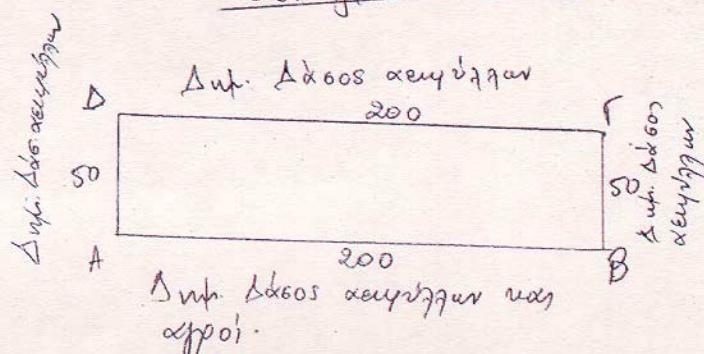 Δημ. Δάσος αειφύλλων
Δ
200
Γ
Δημ. Δάσ. αειφύλλων
50
50
Δημ. Δάσος
αειφύλλων
Α
200
Β
Δημ. Δάσος αειφύλλων και
αγροί.